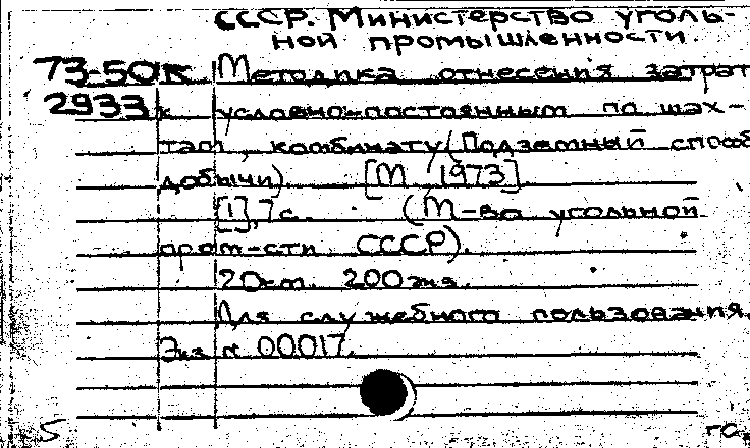 СССР. Министерство уголь-
ной промышленности.
73-50к Методика отнесения затрат
2933 к условно-постоянным по шах-
там, комбинату (Подземный способ
добычи). [М 1973]
[1], 7 с. (М-во угольной
пром-сти СССР).
20 см. 200 экз.
Для служебного пользования.
Экз № 00017.
5 га